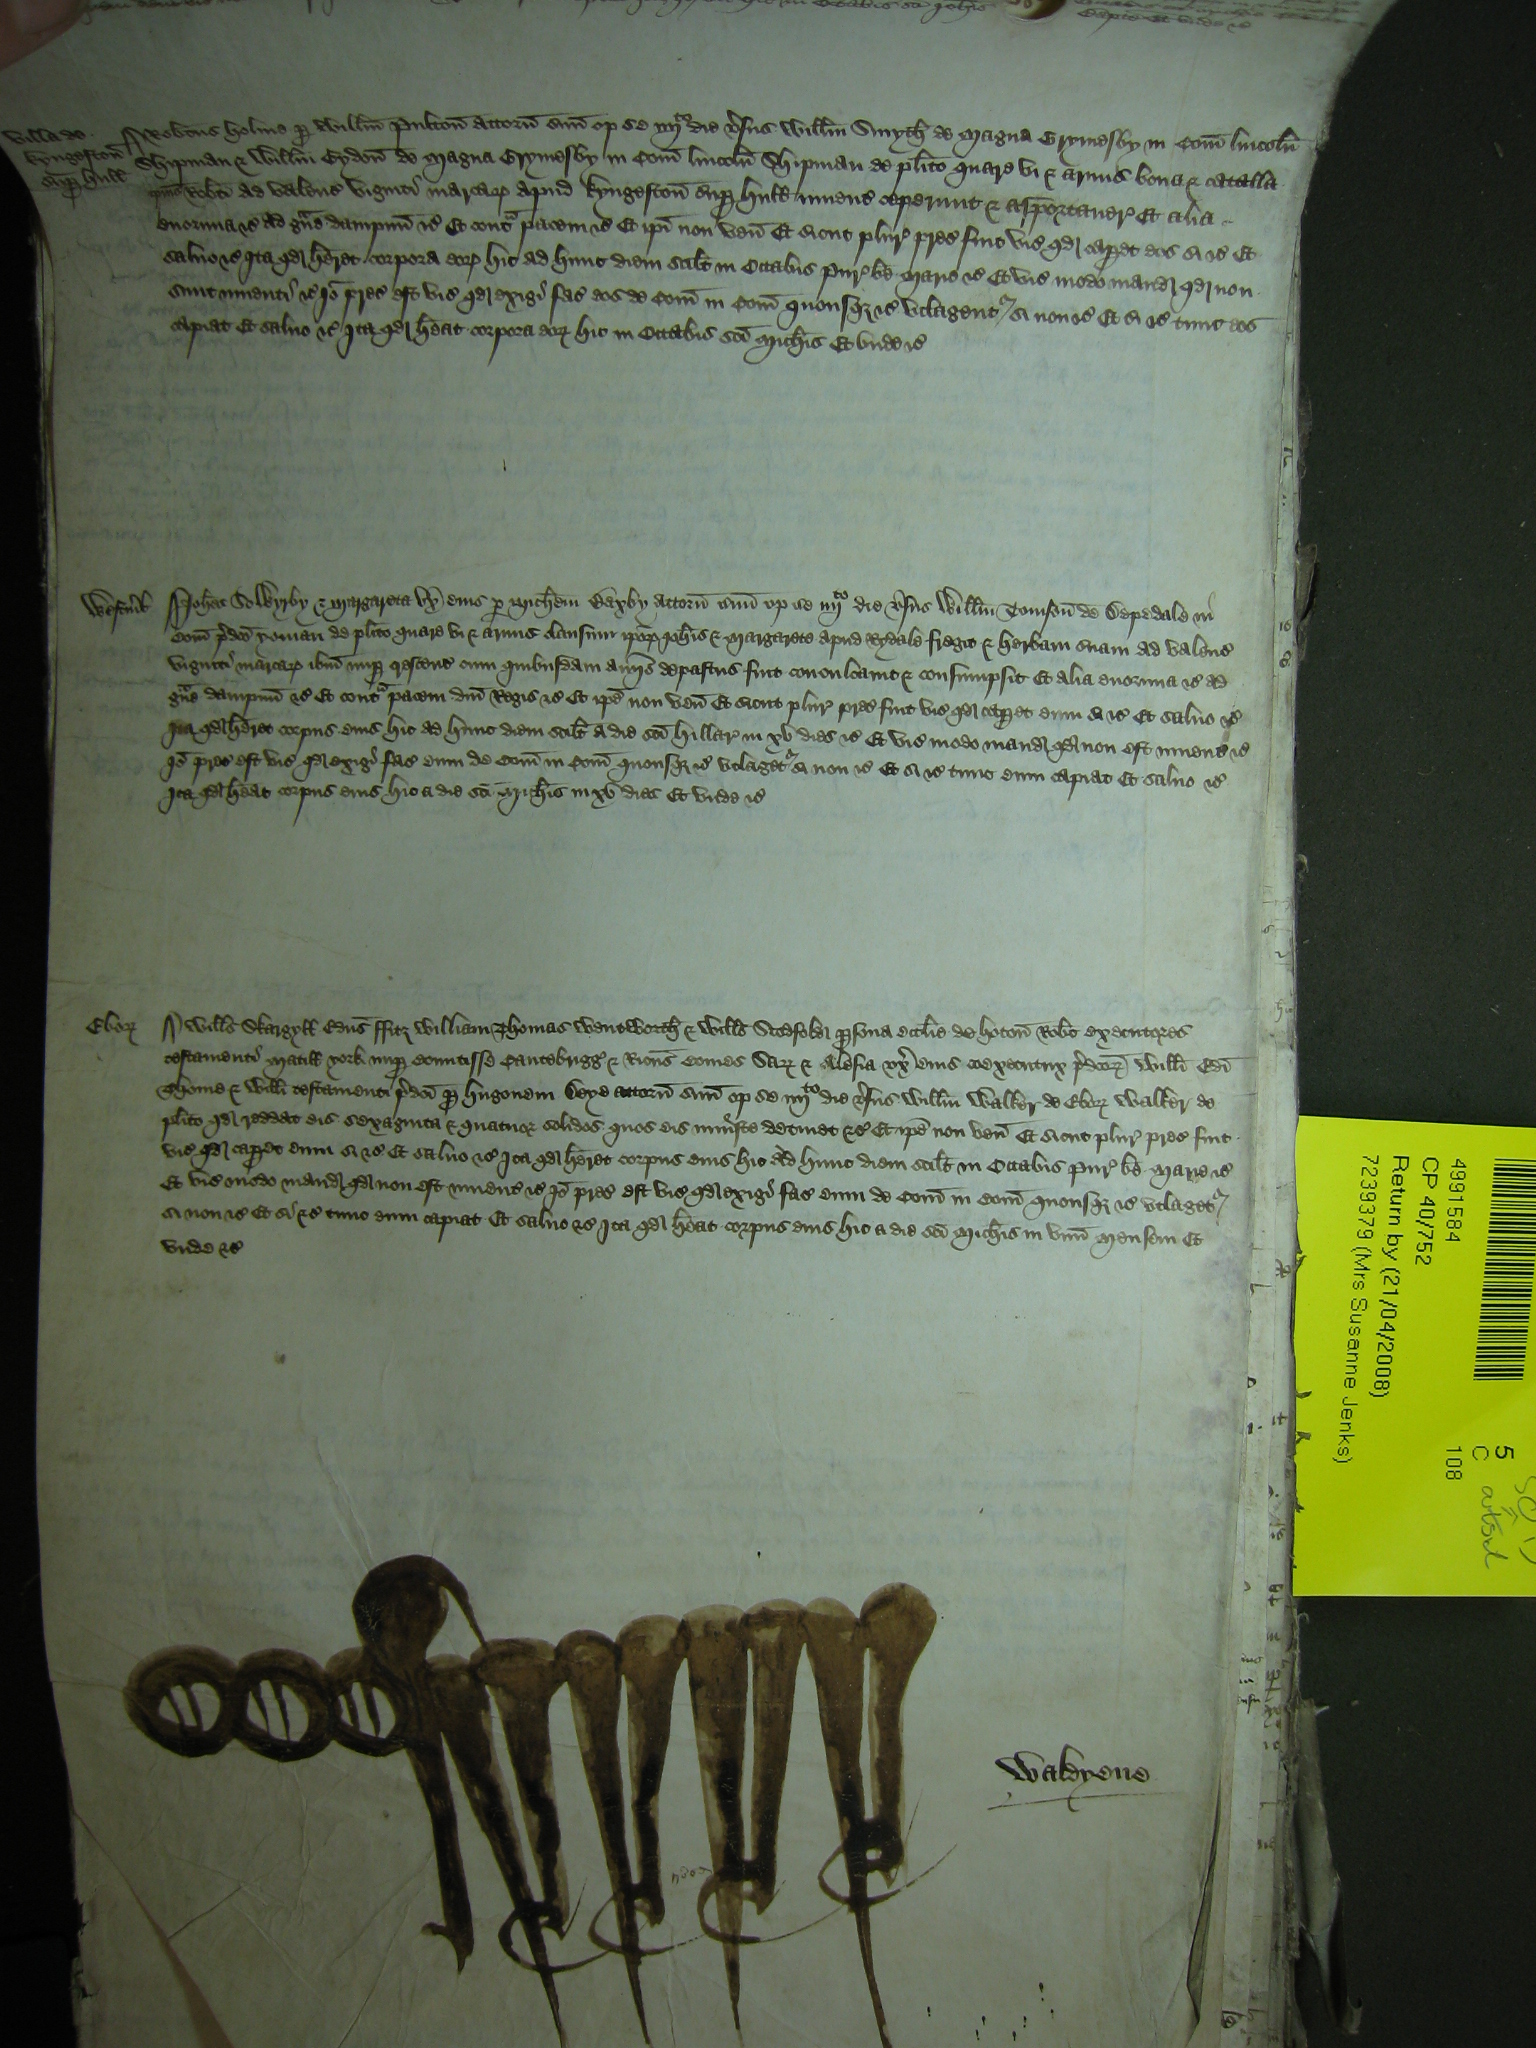 Villa de
Kyngeston
sup Hull
Robtus Holme p Willm Pulton attorn suu op se iiijto die vsus Willm Smyth de Magna Grymesby in Com Lincoln
Shipman & Willm Gydon de Magna Grymesby in Com Lincoln Shipman de plito quare vi & armis bona & catalla
ipius Robti ad valenc viginti marcar apud Kyngeston sup Hull invent ceperunt & asportaver Et alia
enormia &c Ad gve dampnu &c Et contra pacem &c Et ipi non ven Et sicut plur prec fuit vic qd caperet eos si &c Et
salvo &c Ita qd heret corpora eor hic ad hunc diem scilt in Octabis Pur be Marie &c Et vic modo mand qd non
sunt inventi &c Io prec est vic qd exigi fac eos de Com in Com quousq &c utlagent si non &c Et si &c tunc eos
capiat Et salvo &c Ita qd heat corpora eor hic in Octabis sci Michis Et unde &c
Westmrl
Johes Solkyrby & Margareta ux eius p Michem Caxby attorn suu op se iiijto die vsus Willm Tomson de Depedale in
Com pdco yoman de plito quare vi & armis clausum ipor Johis & Margarete apud Rydale fregit & herbam suam ad valenc
viginti marcar ibm nup crescent cum quibusdam aviis depastus fuit conculcavit & consumpsit Et alia enormia &c ad
gve dampnu &c Et contra pacem dni Regis &c Et ipe non ven Et sicut plur prec fuit vic qd caperet eum si &c Et salvo &c
Ita qd heret corpus eius hic ad hunc diem scilt a die sci Hillar in xv dies &c Et vic modo mand qd non est invent &c
Io prec est vic qd exigi fac eum de Com in Com quousq &c utlaget si non &c Et si &c tunc eum capiat Et salvo &c
Ita qd heat corpus eius hic a die sci Michis in xv dies Et unde &c
Ebor
Wills Skargyll Edus Fitz William Thomas Wentworth & Wills Scosfeld psona ecclie de Hoton Robt executores
testamenti Matill York nup Comitisse Cantebrigg & Ricus Comes Sarr & Alesia ux eius coexecutrix pdcor Willi Edi
Thome & Willi testamenti pdci p Hugonem Deye attorn suu op se iiijto die vsus Willm Walker de Ebor Walker de
plito qd reddat eis sexaginta & quatuor solidos quos eis iniuste detinet &c Et ipe non ven Et sicut plur prec fuit
vic qd caperet eum si &c Et salvo &c Ita qd heret corpus eius hic ad hunc diem scilt in Octabis Pur be Marie &c
Et vic modo mand qd non est invent &c Io prec est vic qd exigi fac eum de Com in Com quousq &c utlaget
si non &c Et si &c tunc eum capiat Et salvo &c Ita qd heat corpus eius hic a die sci Michis in unu mensem Et
unde &c
Waldyene
4991584
CP 40/752
Return by (21/04/2008)
7239379 (Mrs Susanne Jenks)
5
C
108